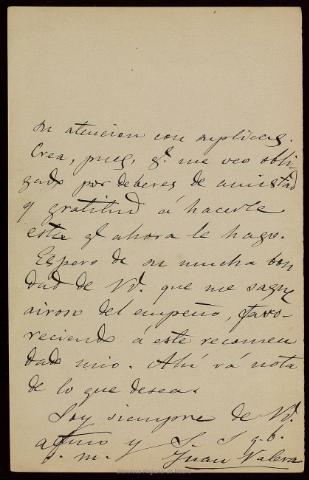 su atencion con súplicas.
Crea, pues, q.e me veo obli
gado por deberes de amistad
y gratitud á hacerle
esta q.e ahora le hago.
Espero de su mucha bon
dad de Vd. que me saque
airoso del empeño, favo-
reciendo á este recomen
dado mio. Ahí vá nota
de lo que desea.
Soy siempre de Vd.
afmo y S. S. q. b.
s. m. Juan Valera